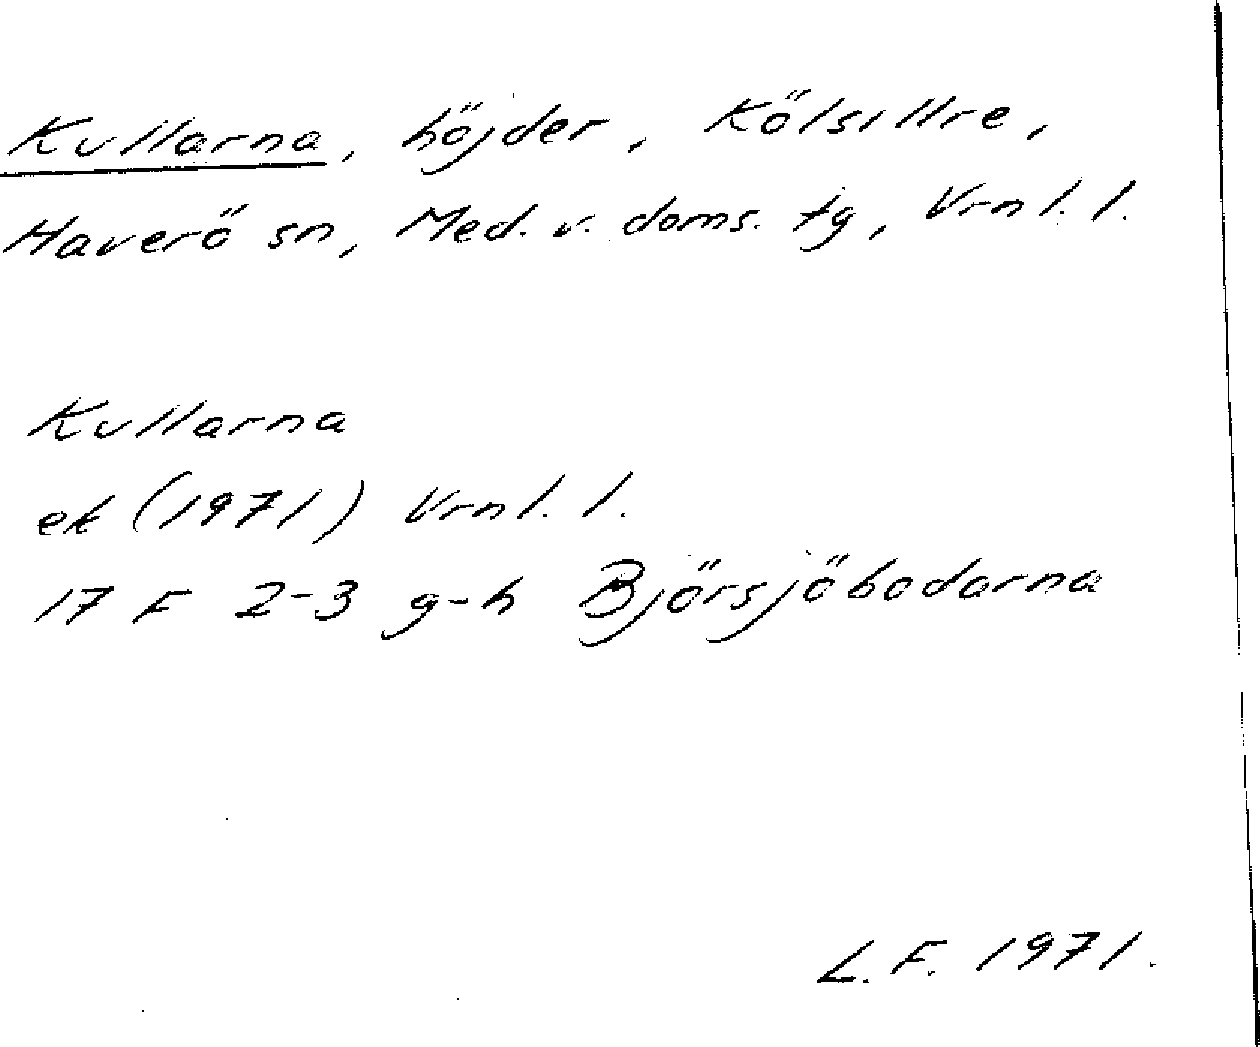 Kullarna, höjder, Kölsillre,
Haverö sn, Med. v. doms. tg, Vrnl. l.
Kullarna
ek (1971) Vrnl. l.
17 F 2-3 g-h Björsjöbodarna
L.F. 1971.